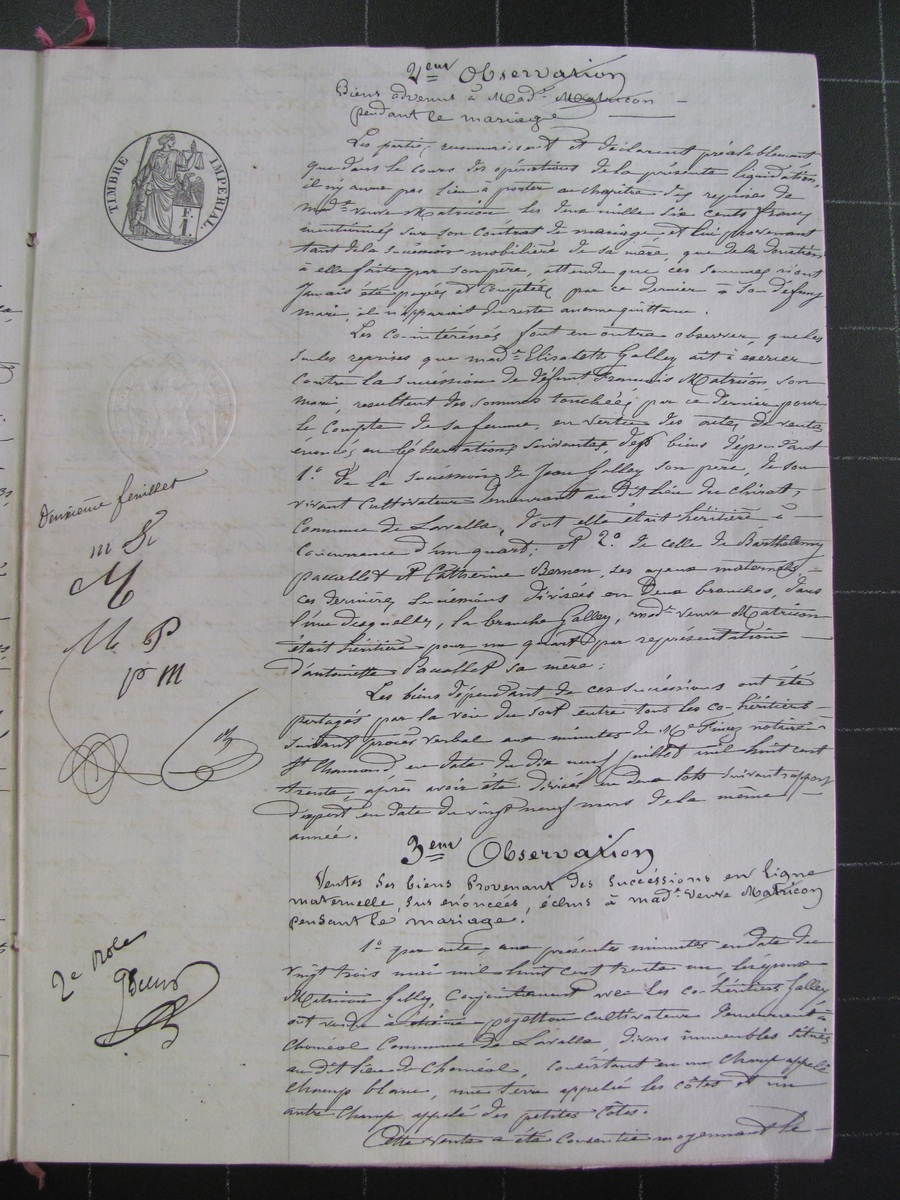 2eme Observation
Biens advenus à Made Matricon
pendant le mariage
TIMBRE IMPERIAL
1 F.
Les parties reconnaissent et déclarent préalablement
que dans le cours des opérations de la présente liquidation,
il n'y aura pas lieu à porter au chapitre des reprises de
made veuve Matricon les deux mille six cents francs
mentionnés sur son Contrat de mariage et lui provenant
tant de la succession mobilière de sa mère, que de la donation
à elle faite par son père, attendu que ces sommes n'ont
Jamais été payées et comptées par ce dernier à son défunt
mari, il n'apparait du reste aucune quittance.
Les co-intéressés font en outre observer, que les
seules reprises que made Elisabeth Galley ait à exercer
contre la succession de défunt François Matricon son
mari resultent des sommes touchées par ce dernier pour
le Compte de sa femme, en vertu des actes de vente
énoncés en les observations suivantes, des biens dépendant
1° De la succession de Jean Galley son père, de son
vivant cultivateur demeurant au dit lieu du chirat,
Commune de Lavalla, dont elle était héritière à
Concurrence d'un quart; et 2° de celle de Barthélemy
paccallet et Catherine Bernon, ses ayeux maternels,
ces dernières successions divisées en Deux branches, dans
l'une desquelles, la branche Galley, made veuve Matricon
était héritière pour un quart par représentation
d'antoinette Paccallet sa mère;
Les biens dépendant de ces successions ont été
partagés par la voie du sort entre tous les co-héritiers
suivant procès verbal aux minutes de Me Finez notaire
St Chamond en date du dix neuf juillet mil huit cent
trente, après avoir été divisés en deux lots suivant rapport
d'expert en date du vingt neuf mars de la même
année.
Deuxième feuillet
m G
M
M P
p m
3eme Observation
Ventes des biens provenant des successions en ligne
maternelle, sus énoncées, échus à made Veuve Matricon
pendant le mariage.
1° par acte, aux présentes minutes en date du
vingt trois mai mil huit cent trente un les époux
Matricon Galley, Conjointement avec les co-héritiers Galley
ont vendu à payetton cultivateur demeurant à
Choméol Commune de Lavalla, divers immeubles situés
au dit lieu de Choméol, consistant en un champ appelé
champ blanc, une terre appelée les côtes et un
autre champ appelé des petites côtes.
Cette vente a été consentie moyennant le
2e role